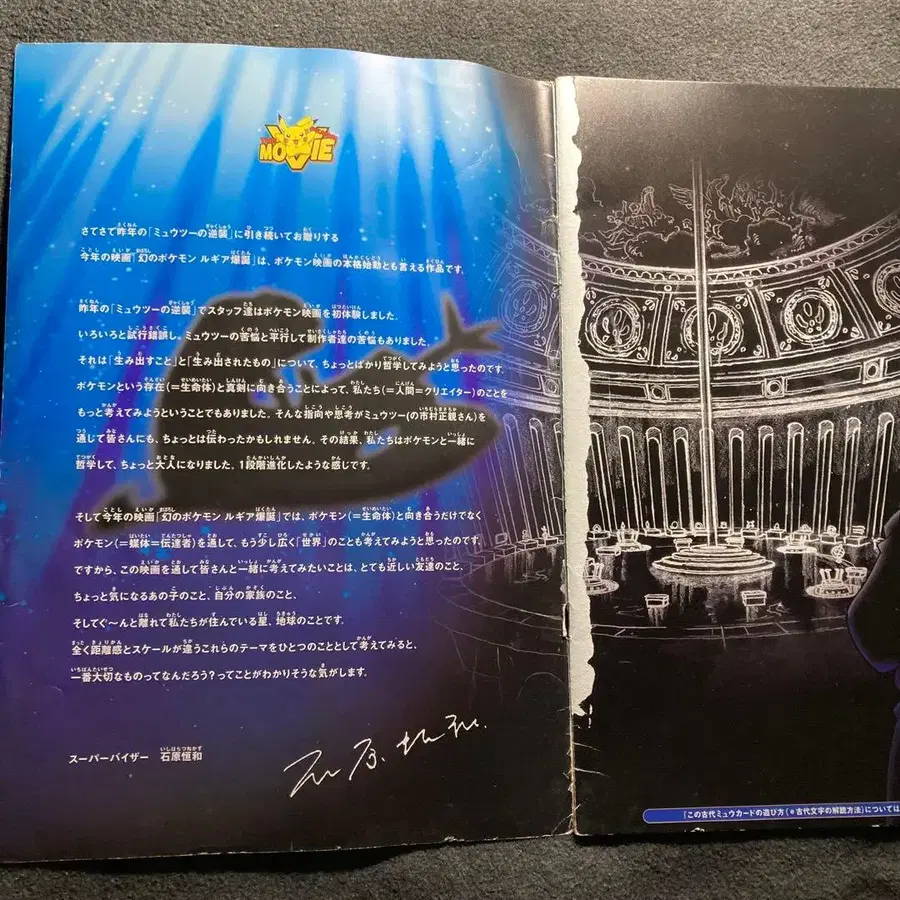 MOVIE
さてさて昨年の「ミュウツーの逆襲」に引き続いてお贈りする
今年の映画「幻のポケモン ルギア爆誕」は、ポケモン映画の本格始動とも言える作品です。
昨年の「ミュウツーの逆襲」でスタッフ達はポケモン映画を初体験しました。
いろいろと試行錯誤し、ミュウツーの苦悩と平行して制作者達の苦悩もありました。
それは「生み出すこと」と「生み出されたもの」について、ちょっとばかり哲学してみようと思ったのです。
ポケモンという存在(=生命体)と真剣に向き合うことによって、私たち(=人間=クリエイター)のことを
もっと考えてみようということでもありました。そんな指向や思考がミュウツー(の市村正親さん)を
通じて皆さんにも、ちょっとは伝わったかもしれません。その結果、私たちはポケモンと一緒に
哲学して、ちょっと大人になりました。1段階進化したような感じです。
そして今年の映画「幻のポケモン ルギア爆誕」では、ポケモン(=生命体)と向き合うだけでなく
ポケモン(=媒体=伝達者)を通して、もう少し広く「世界」のことも考えてみようと思ったのです。
ですから、この映画を通して皆さんと一緒に考えてみたいことは、とても近しい友達のこと、
ちょっと気になるあの子のこと、自分の家族のこと、
そしてぐ〜んと離れて私たちが住んでいる星、地球のことです。
全く距離感とスケールが違うこれらのテーマをひとつのこととして考えてみると、
一番大切なものってなんだろう?ってことがわかりそうな気がします。
スーパーバイザー 石原恒和
石原恒和
「この古代ミュウカードの遊び方(*古代文字の解読方法)については